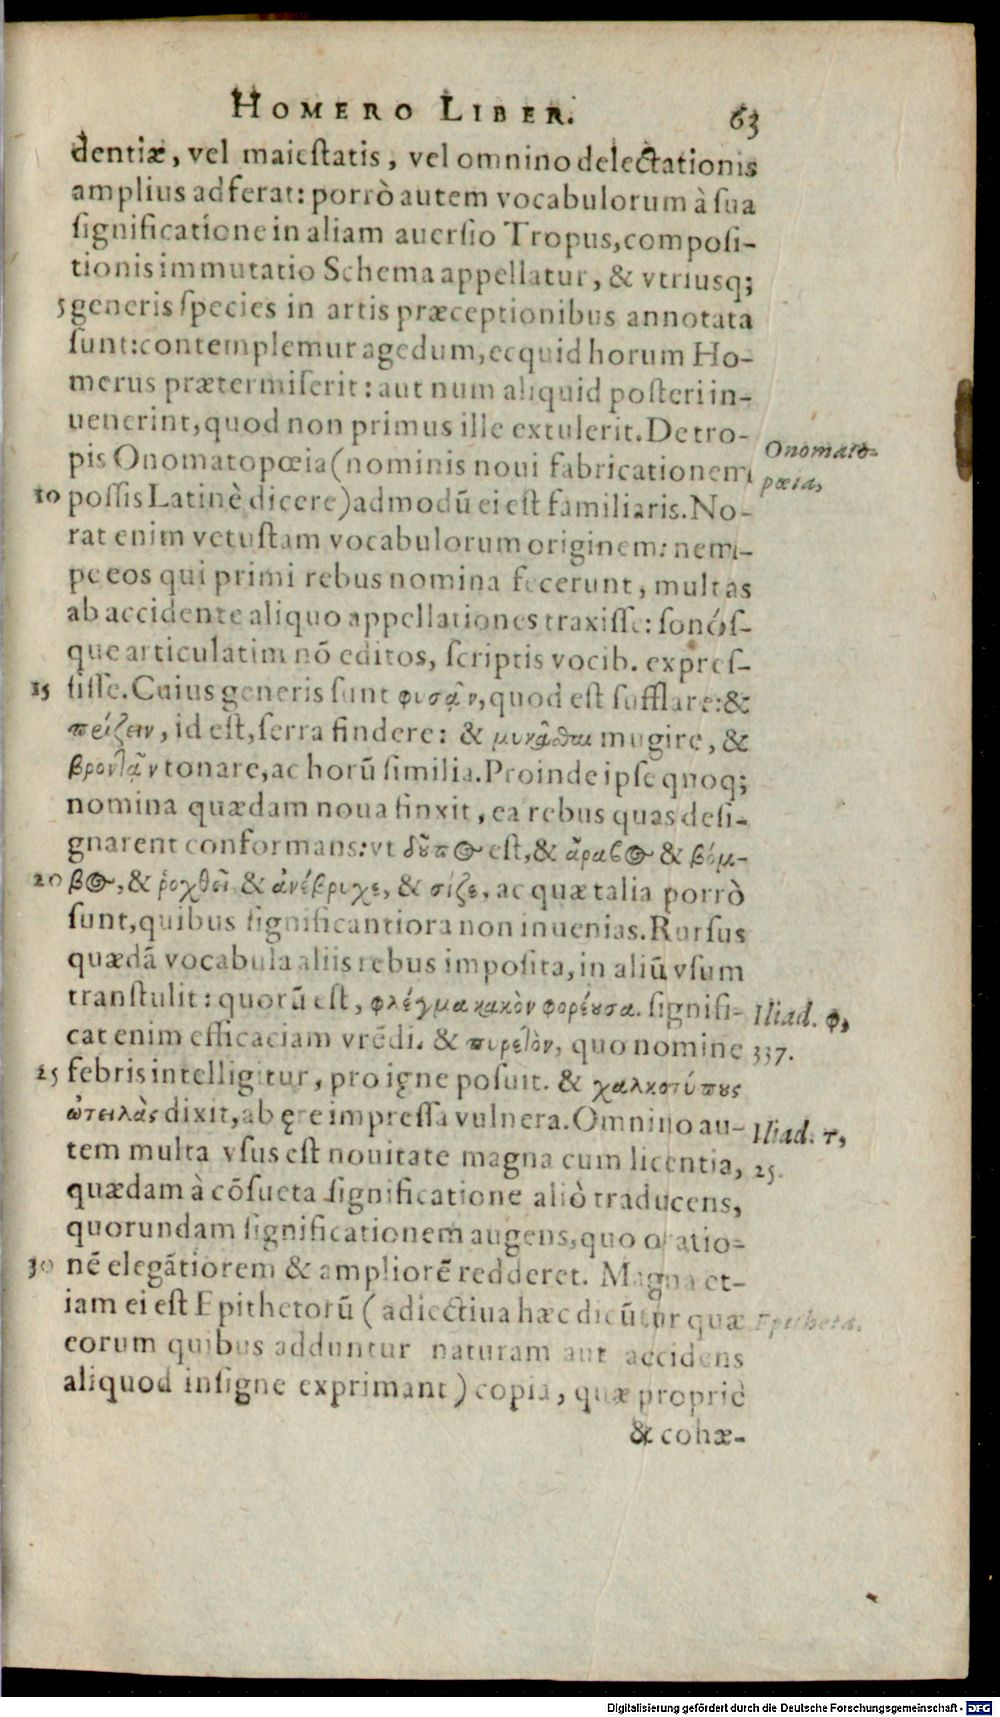 HOMERO LIBER. 63
dentiæ, vel maieſtatis, vel omnino delectationis
amplius adferat: porrò autem vocabulorum à ſua
ſignificatione in aliam auerſio Tropus, compoſi-
tionis immutatio Schema appellatur, & vtriusq;
5 generis ſpecies in artis præceptionibus annotata
ſunt: contemplemur agedum, ecquid horum Ho-
merus prætermiſerit: aut num aliquid poſteri in-
uenerint, quod non primus ille extulerit. De tro-
pis Onomatopœia (nominis noui fabricationem
Onomato-
pœia,
10 poſsis Latinè dicere) admodū ei eſt familiaris. No-
rat enim vetuſtam vocabulorum originem: nem-
pe eos qui primi rebus nomina fecerunt, multas
ab accidente aliquo appellationes traxiſſe: ſonóſ-
que articulatim nō editos, ſcriptis vocib. expreſ-
15 ſiſſe. Cuius generis ſunt φυσᾷν, quod eſt ſufflare: &
πρίζειν, id eſt, ſerra findere: & μυκᾶσθαι mugire, &
βροντᾷν tonare, ac horū ſimilia. Proinde ipſe quoq;
nomina quædam noua finxit, ea rebus quas deſi-
gnarent conformans: vt δοῦπος eſt, & ἄραβος & βόμ-
20 βος, & ῥοχθεῖ & ἀνέβρυχε, & σίζε, ac quæ talia porrò
ſunt, quibus ſignificantiora non inuenias. Rurſus
quædā vocabula aliis rebus impoſita, in aliū vſum
tranſtulit: quorū eſt, φλέγμα κακὸν φορέουσα. ſignifi-
Iliad. φ,
cat enim efficaciam vrēdi. & πυρετὸν, quo nomine
337.
25 febris intelligitur, pro igne poſuit. & χαλκοτύπους
ὠτειλὰς dixit, ab ęre impreſſa vulnera. Omnino au-
Iliad. τ,
tem multa vſus eſt nouitate magna cum licentia,
25.
quædam à cōſueta ſignificatione aliò traducens,
quorundam ſignificationem augens, quo oratio-
30 nē elegātiorem & ampliorē redderet. Magna et-
iam ei eſt Epithetorū (adiectiua hæc dicūtur quæ
Epitheta.
eorum quibus adduntur naturam aut accidens
aliquod inſigne exprimant) copia, quæ propriè
& cohæ-
Digitalisierung gefördert durch die Deutsche Forschungsgemeinschaft - DFG